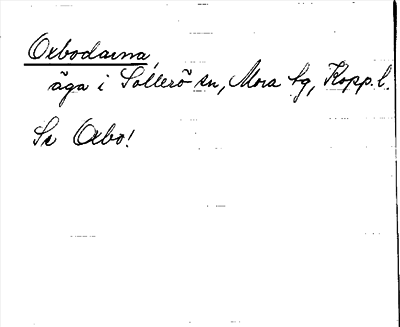 Oxbodarna,
äga i Sollerö sn, Mora tg, Kopp. l.
Se Oxbo!